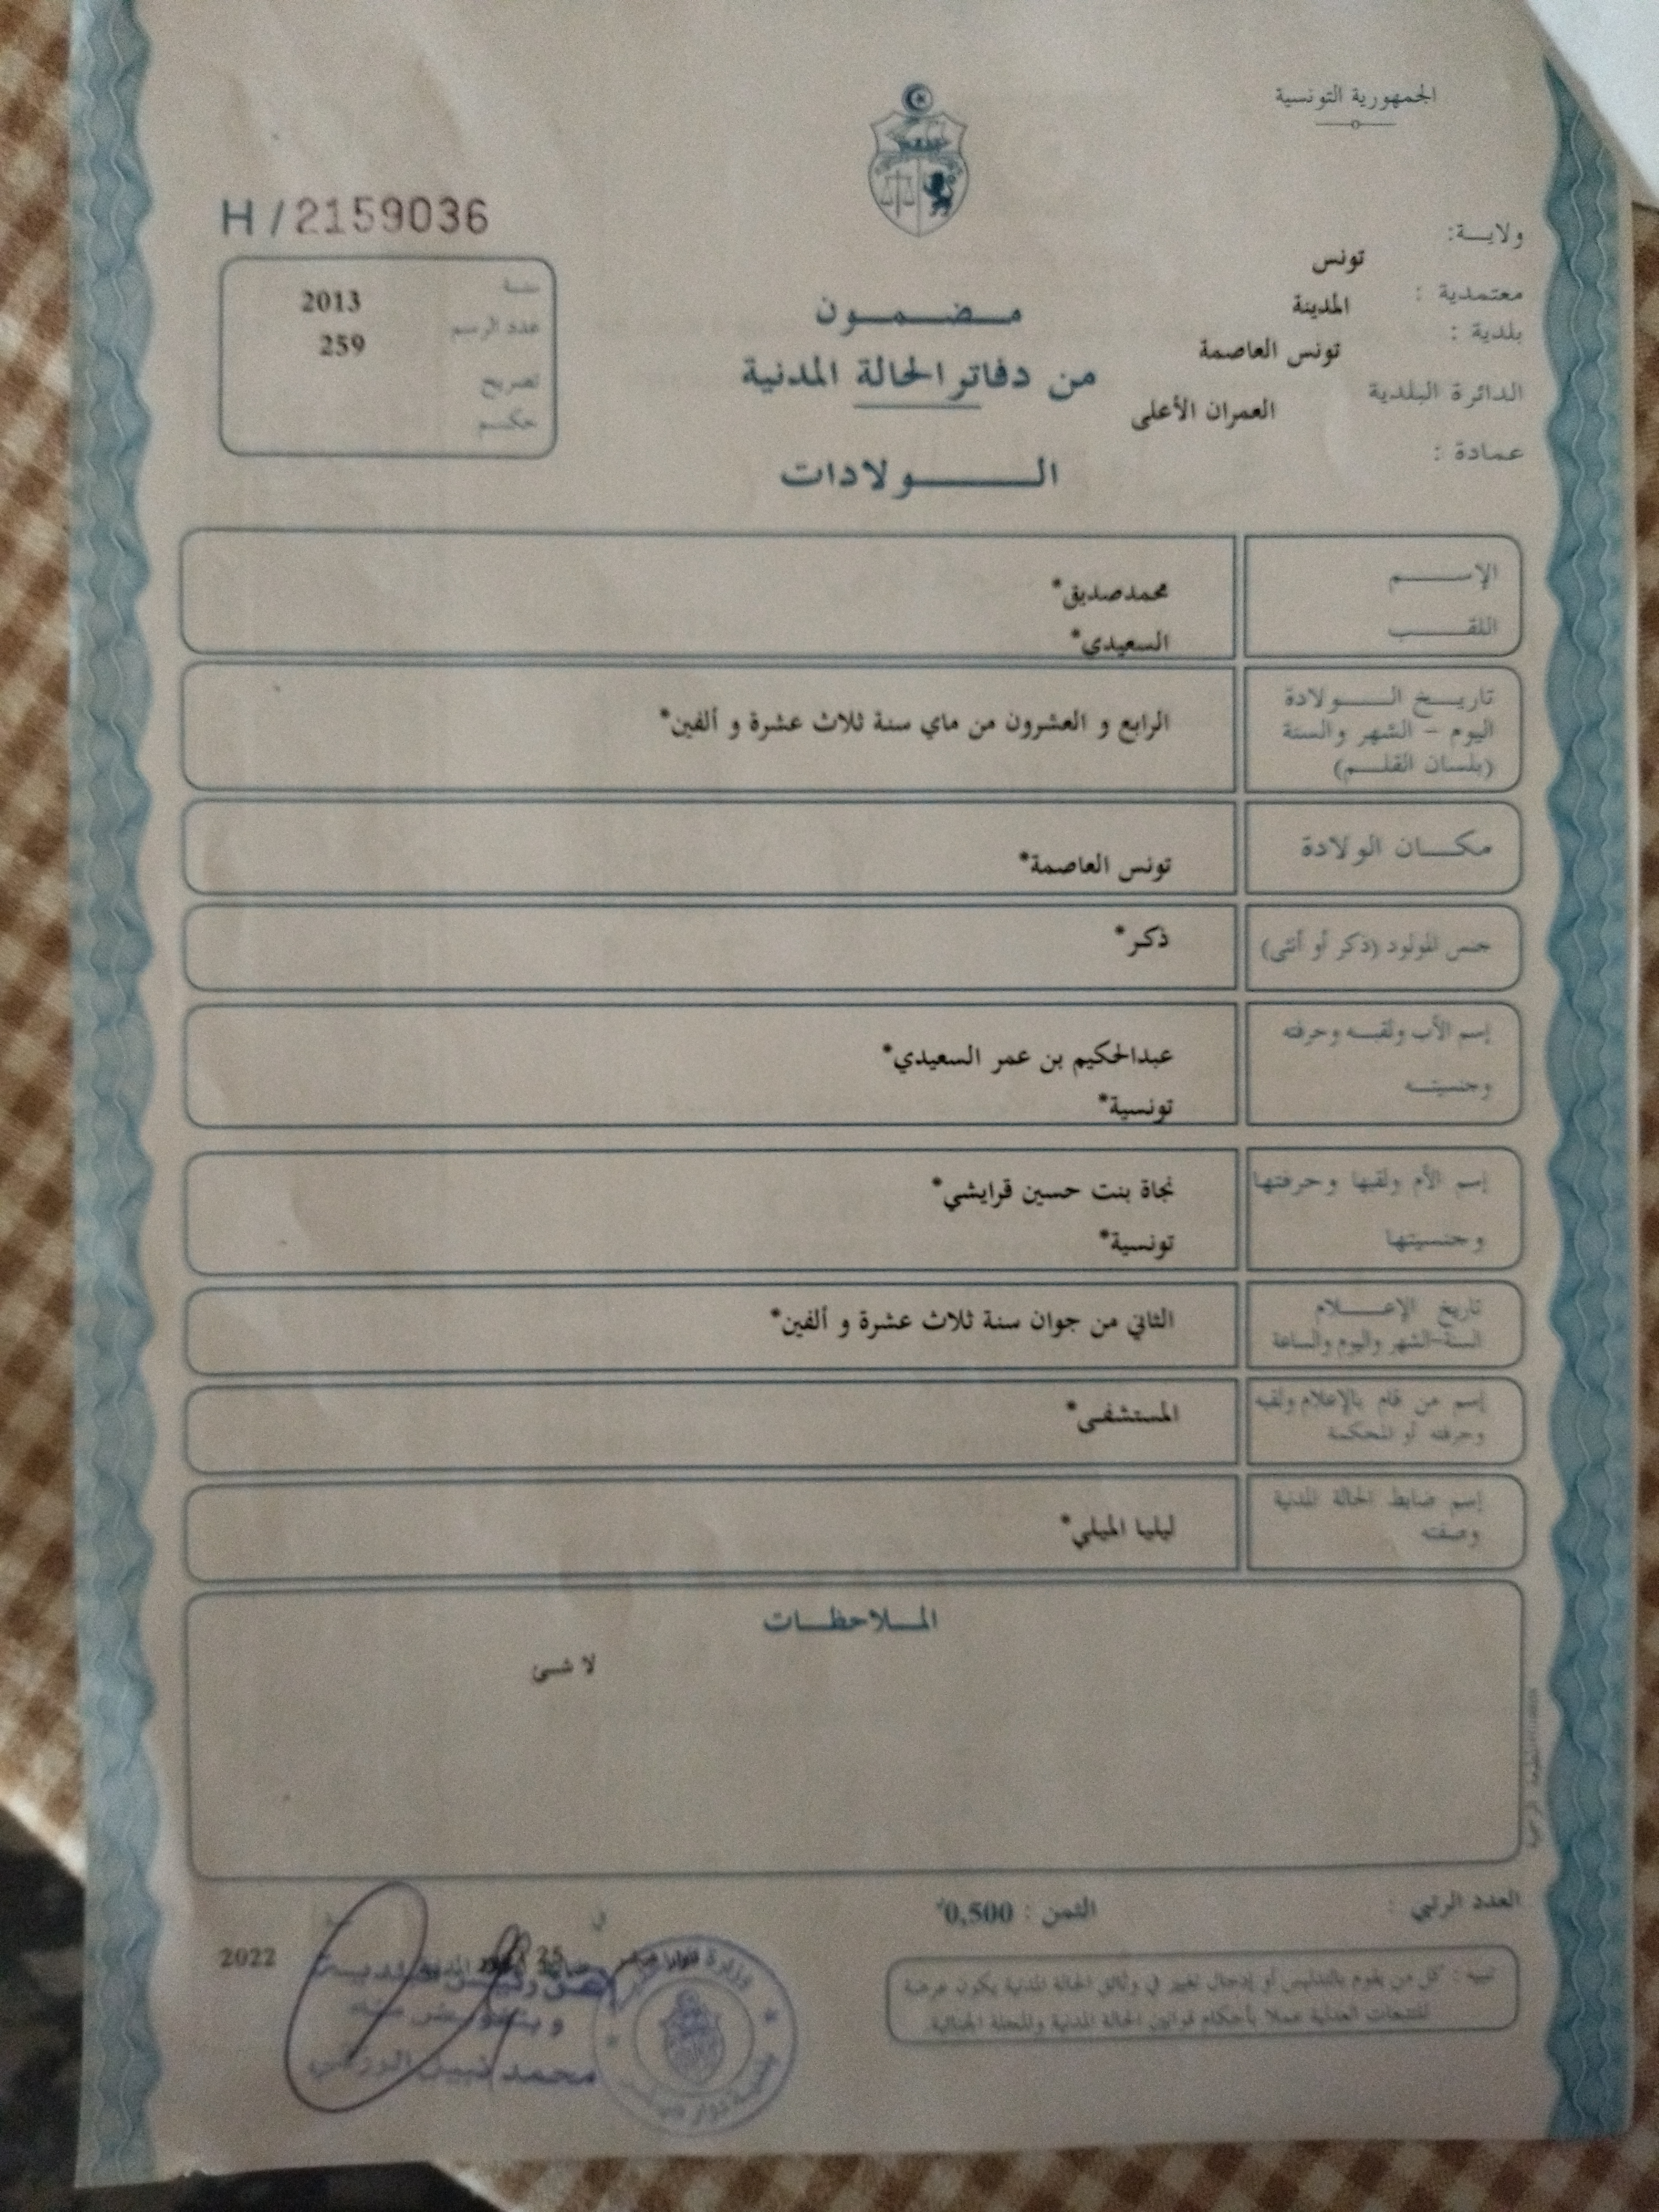 الجمهورية التونسية
ولايـــة:
تونس
معتمدية :
المدينة
بلدية :
تونس العاصمة
الدائرة البلدية
العمران الأعلى
عمادة :
مـضـمـون
من دفاتر الحالة المدنية
الـولادات
H / 2159036
سنـة
2013
عدد الرسم
259
تصريح
حكـم
الإســـم
محمدصديق*
اللقـــب
السعيدي*
تاريـــخ الـــولادة
اليوم - الشهر والسنة
(بلسان القلـــم)
الرابع و العشرون من ماي سنة ثلاث عشرة و ألفين*
مكـــان الولادة
تونس العاصمة*
جنس المولود (ذكر أو أنثى)
ذكر*
إسم الأب ولقبـه وحرفته
وجنسيتـه
عبدالحكيم بن عمر السعيدي*
تونسية*
إسم الأم ولقبها وحرفتها
وجنسيتها
نجاة بنت حسين قرايشي*
تونسية*
تاريخ الإعـــلام
السنة-الشهر واليوم والساعة
الثاني من جوان سنة ثلاث عشرة و ألفين*
إسم من قام بالإعلام ولقبه
وحرفته أو المحكمة
المستشفى*
إسم ضابط الحالة المدنية
وصفته
ليليا الميلي*
الملاحظـات
لا شئ
العدد الرتبي :
الثمن : 0,500
في
25
2022
تنبيه : كل من يقوم بالتدليس أو إدخال تغيير في وثائق الحالة المدنية يكون عرضة
للتتبعات العدلية عملا بأحكام قوانين الحالة المدنية والمجلة الجنائية.
محمد نبيل